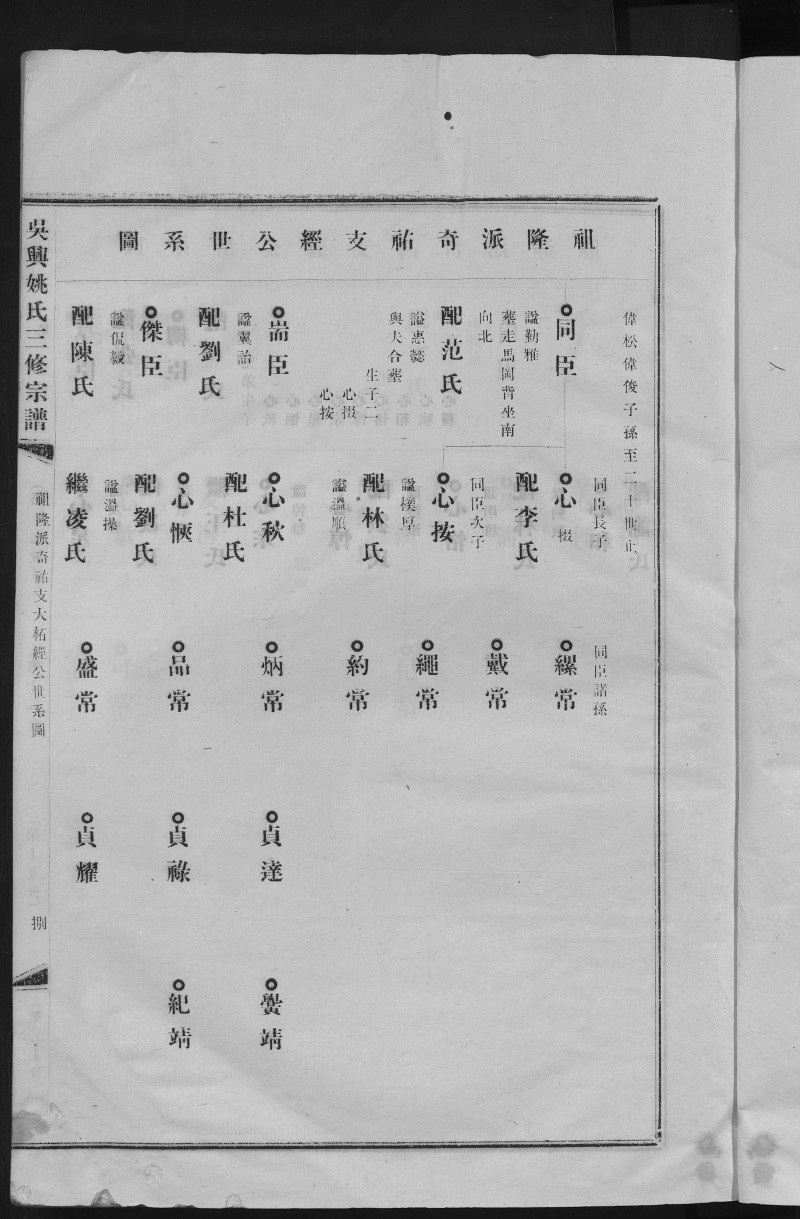 祖隆派奇祐支經公世系圖
偉松偉俊子孫至二十世止
同臣
諡勤雅
塟走馬岡背坐南
向北
配范氏
諡惠懿
與夫合塟
生子二
心掇
心按
耑臣
諡翼詒
配劉氏
傑臣
諡侃毅
配陳氏
同臣長子
心掇
配李氏
同臣次子
心按
諡樸厚
配林氏
諡溫順
心秋
配杜氏
心愜
配劉氏
諡溫操
繼凌氏
同臣諸孫
縲常
戴常
繩常
約常
炳常
品常
盛常
貞達
貞祿
貞耀
黌靖
紀靖
吳興姚氏三修宗譜
祖隆派奇祐支大柘經公世系圖
捌